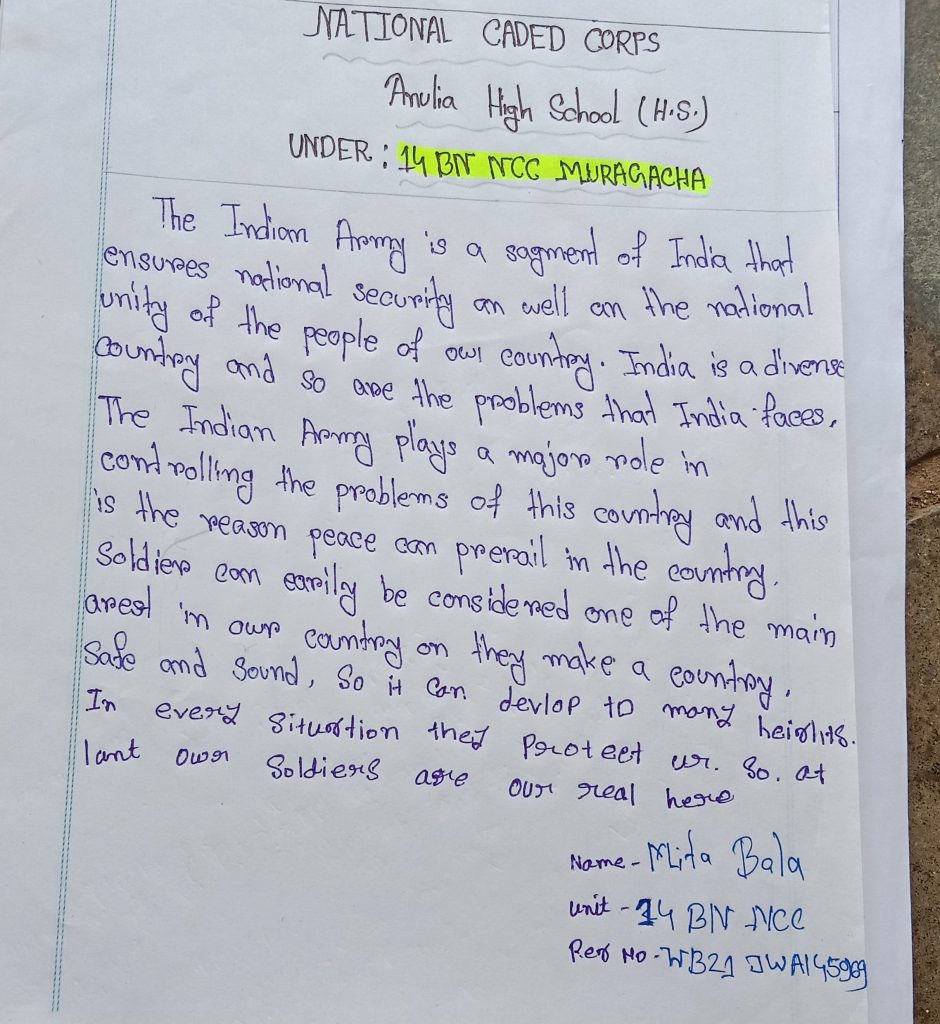 NATIONAL CADED CORPS
Anulia High School (H.S.)
UNDER : 14 BN NCC MURAGACHA
The Indian Army is a sagment of India that
ensures national security an well an the national
unity of the people of our country. India is a divense
country and so are the problems that India faces,
The Indian Army plays a major role in
controlling the problems of this country and this
is the reason peace can prevail in the country.
Soldier can earily be considered one of the main
arest in our country on they make a country,
Safe and Sound, So it can devlop to many heights.
In every situation they Protect ur. So. at
lant our Soldiers are our real hero
Name - Mita Bala
unit - 14 BN NCC
Reg No - WB21 JWA145969